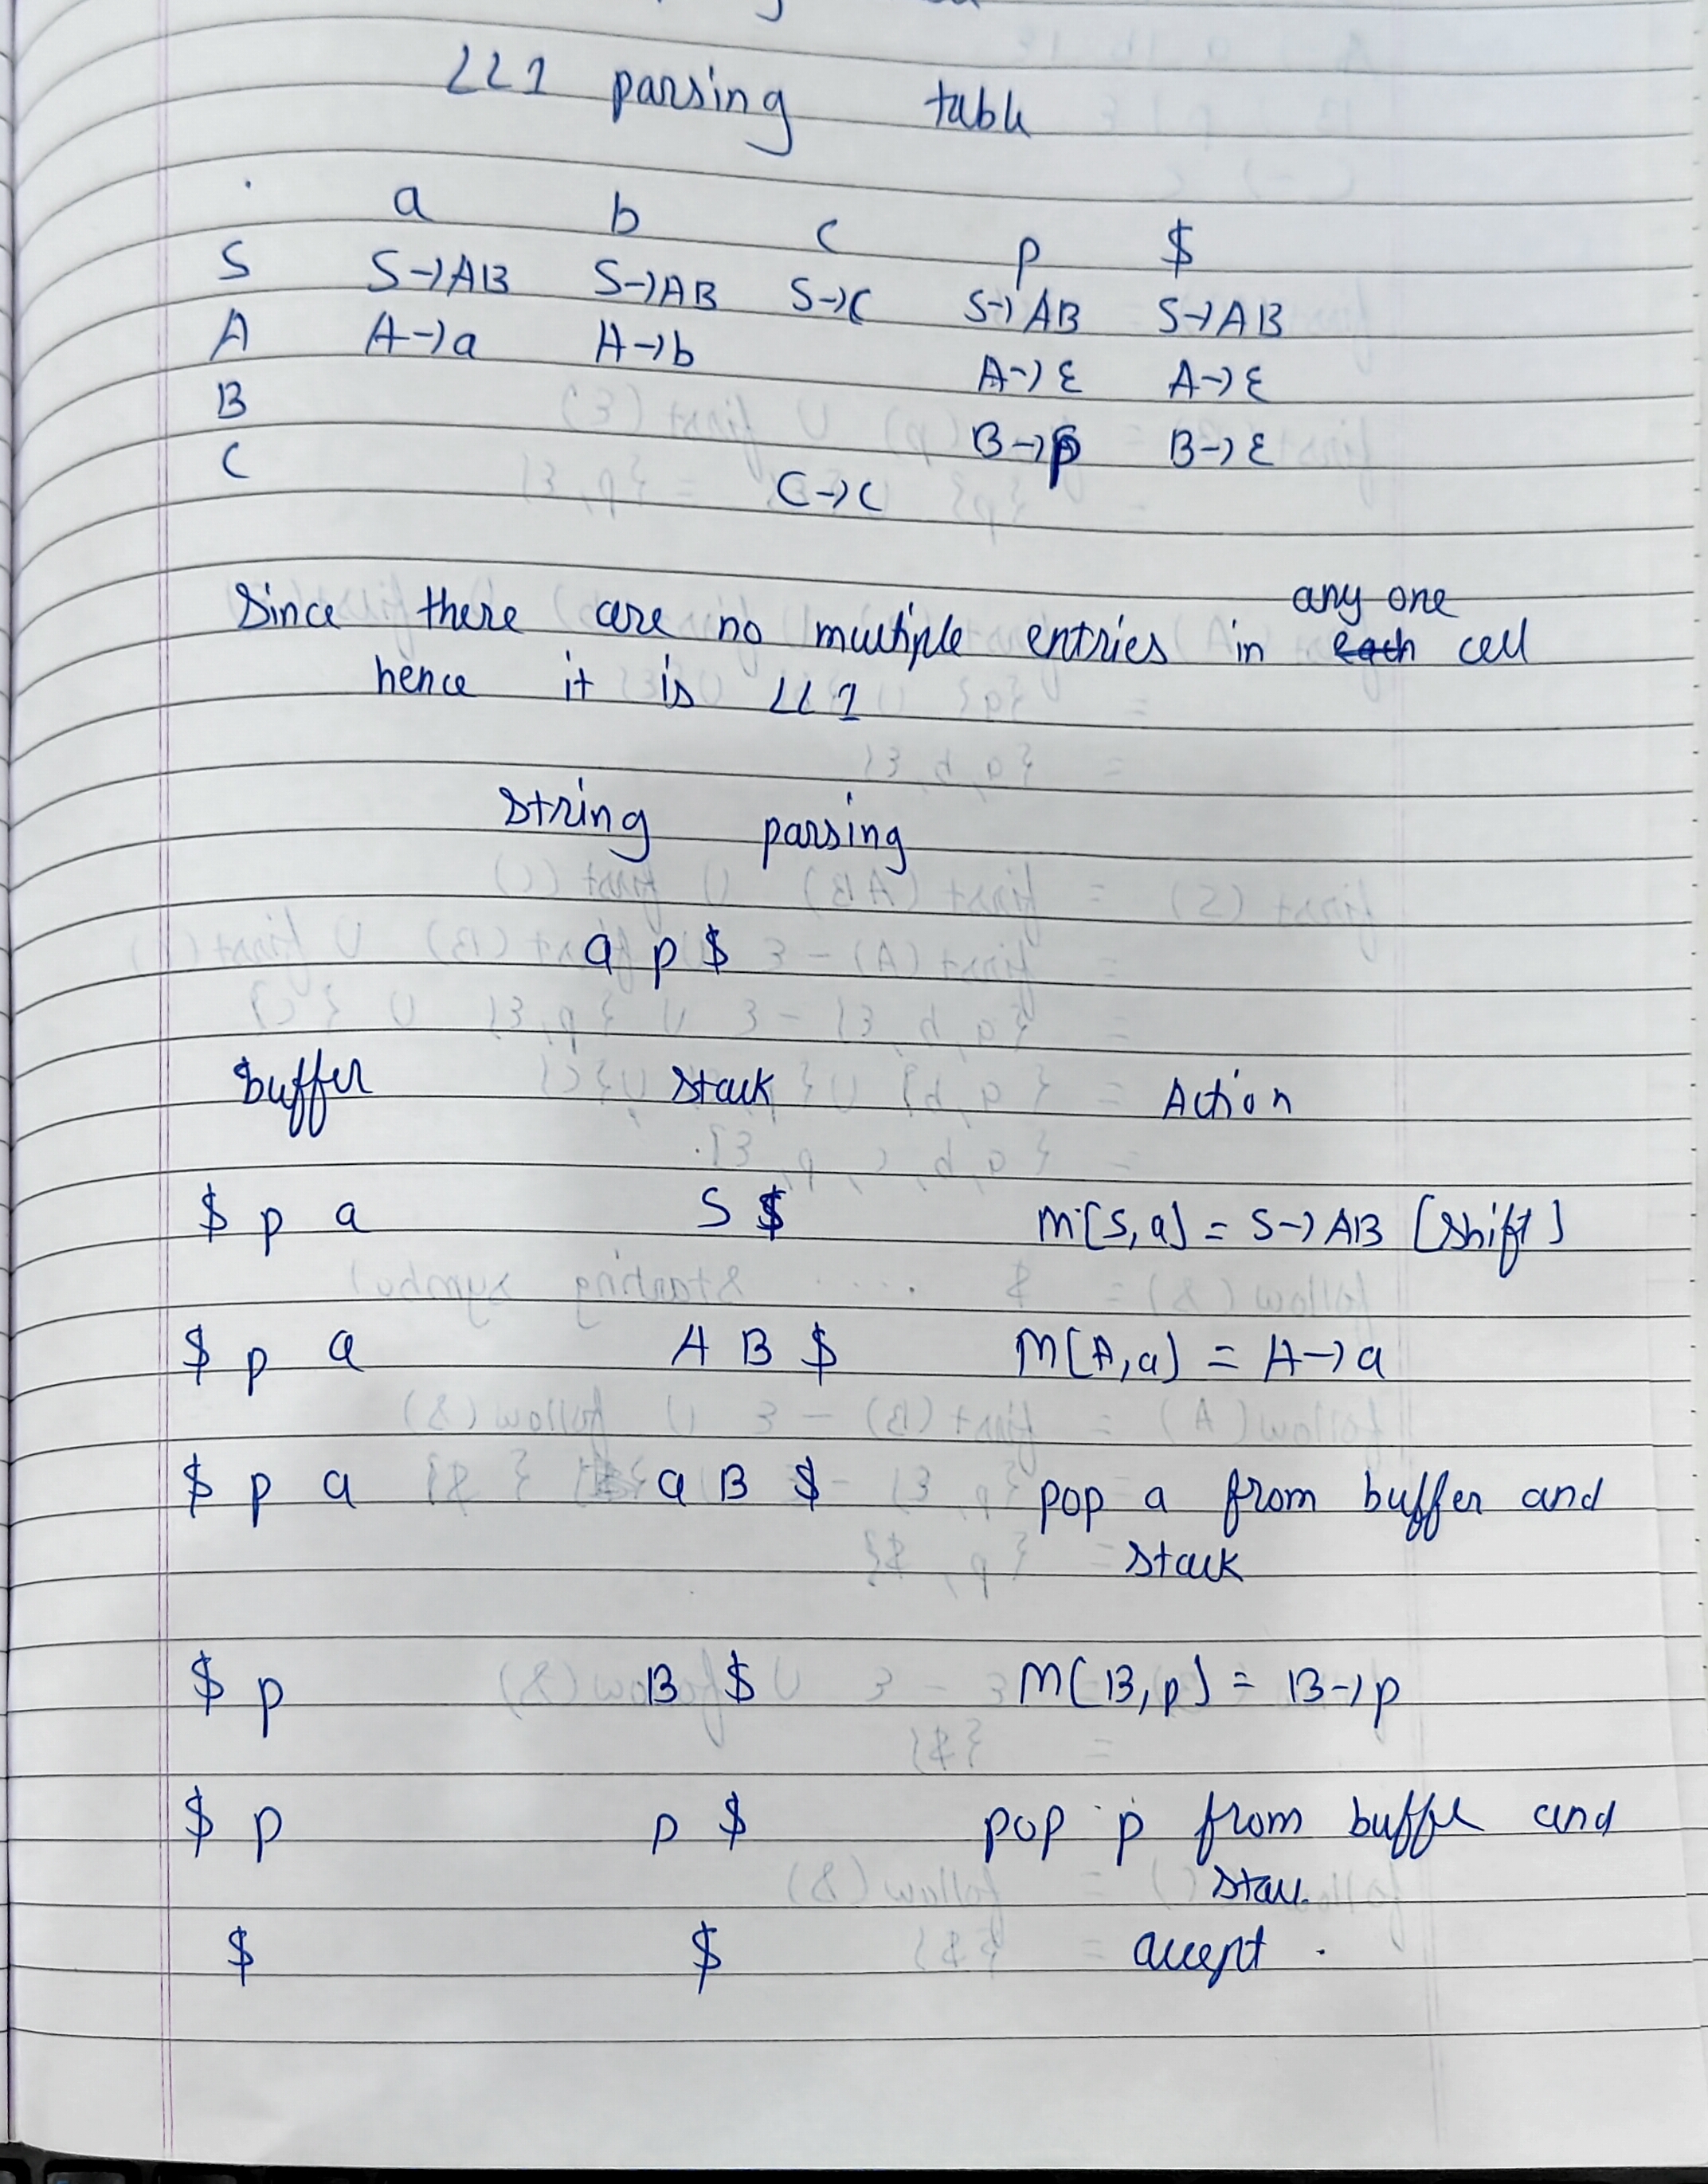 LL1 parsing table
a b c p $
S S→AB S→AB S→C S→AB S→AB
A A→a A→b A→ε A→ε
B B→p B→ε
C C→c
Since there are no multiple entries in any one each cell
hence it is LL1
String parsing
a p $
buffer stack Action
$ p a S $ M[S,a] = S→AB [shift]
$ p a A B $ M[A,a] = A→a
$ p a a B $ pop a from buffer and
stack
$ p B $ M[B,p] = B→p
$ p p $ pop p from buffer and
stack
$ $ accept .